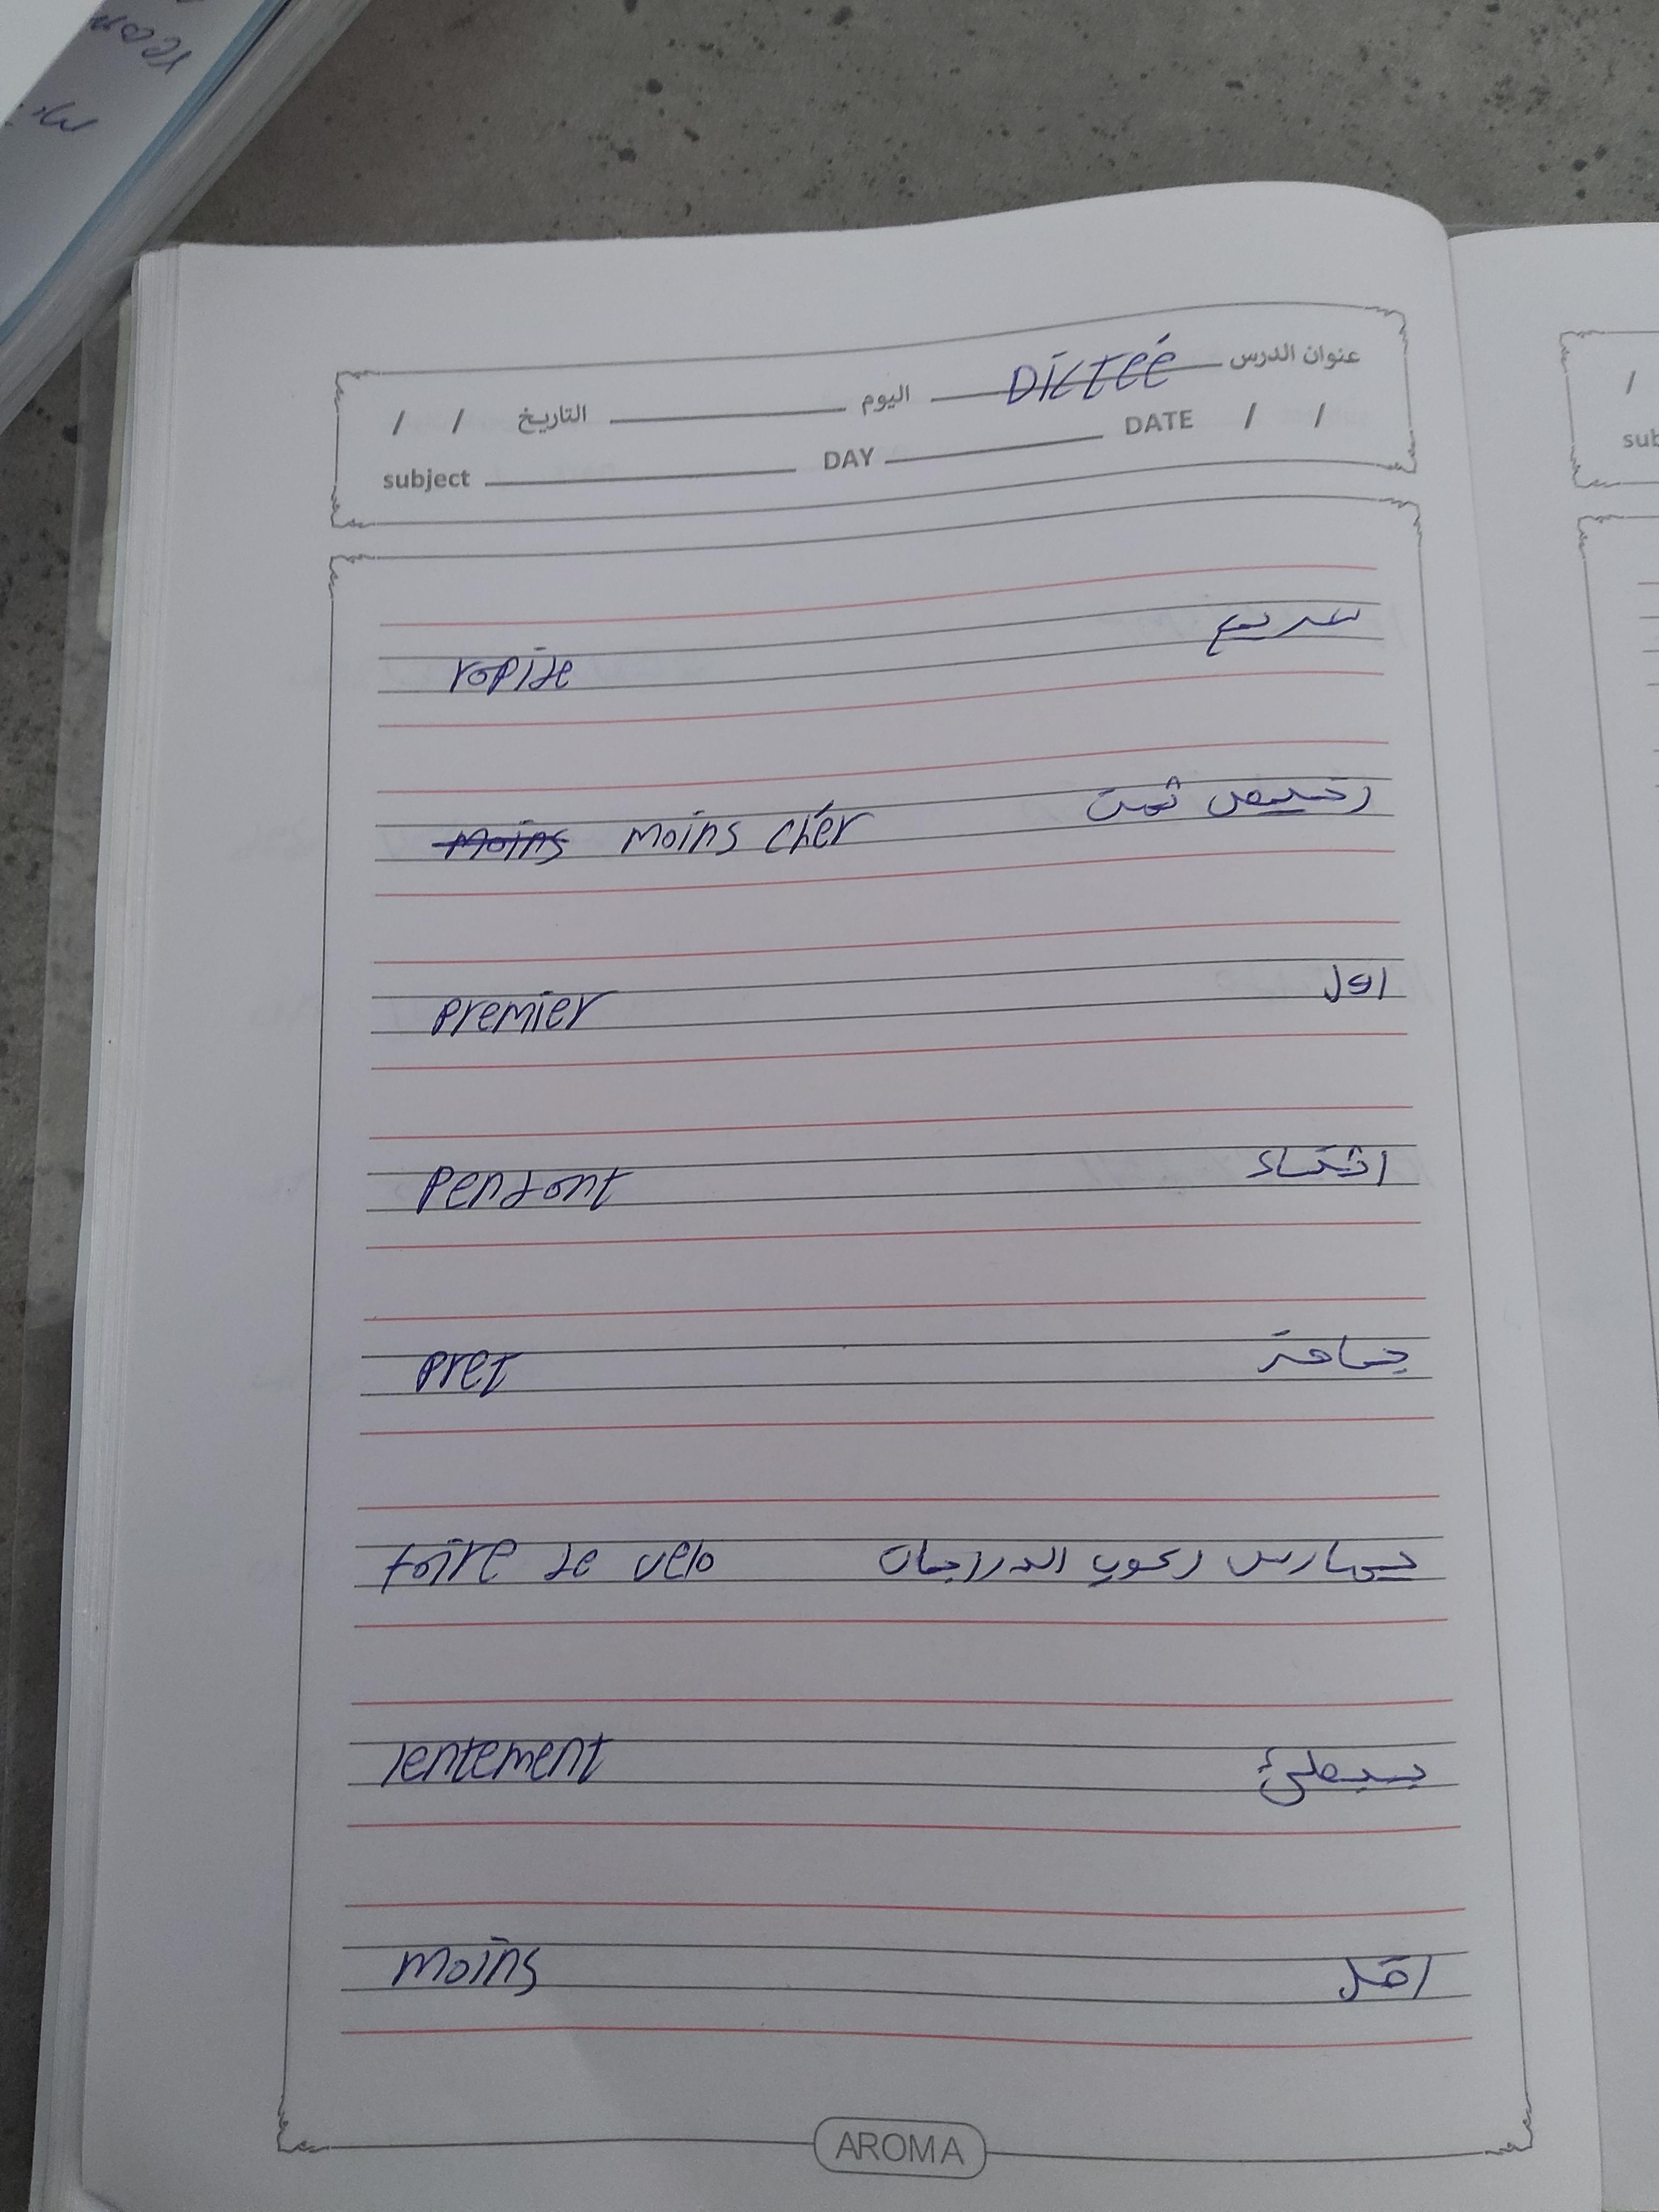 عنوان الدرس DICTEÉ اليوم التاريخ / /
subject DAY DATE / /
rapide سريع
moins moins chér رخيص ثمن
premier اول
pendant اثناء
pret جاهز
faire de velo يمارس ركوب الدراجات
lentement ببطئ
moins اقل
AROMA